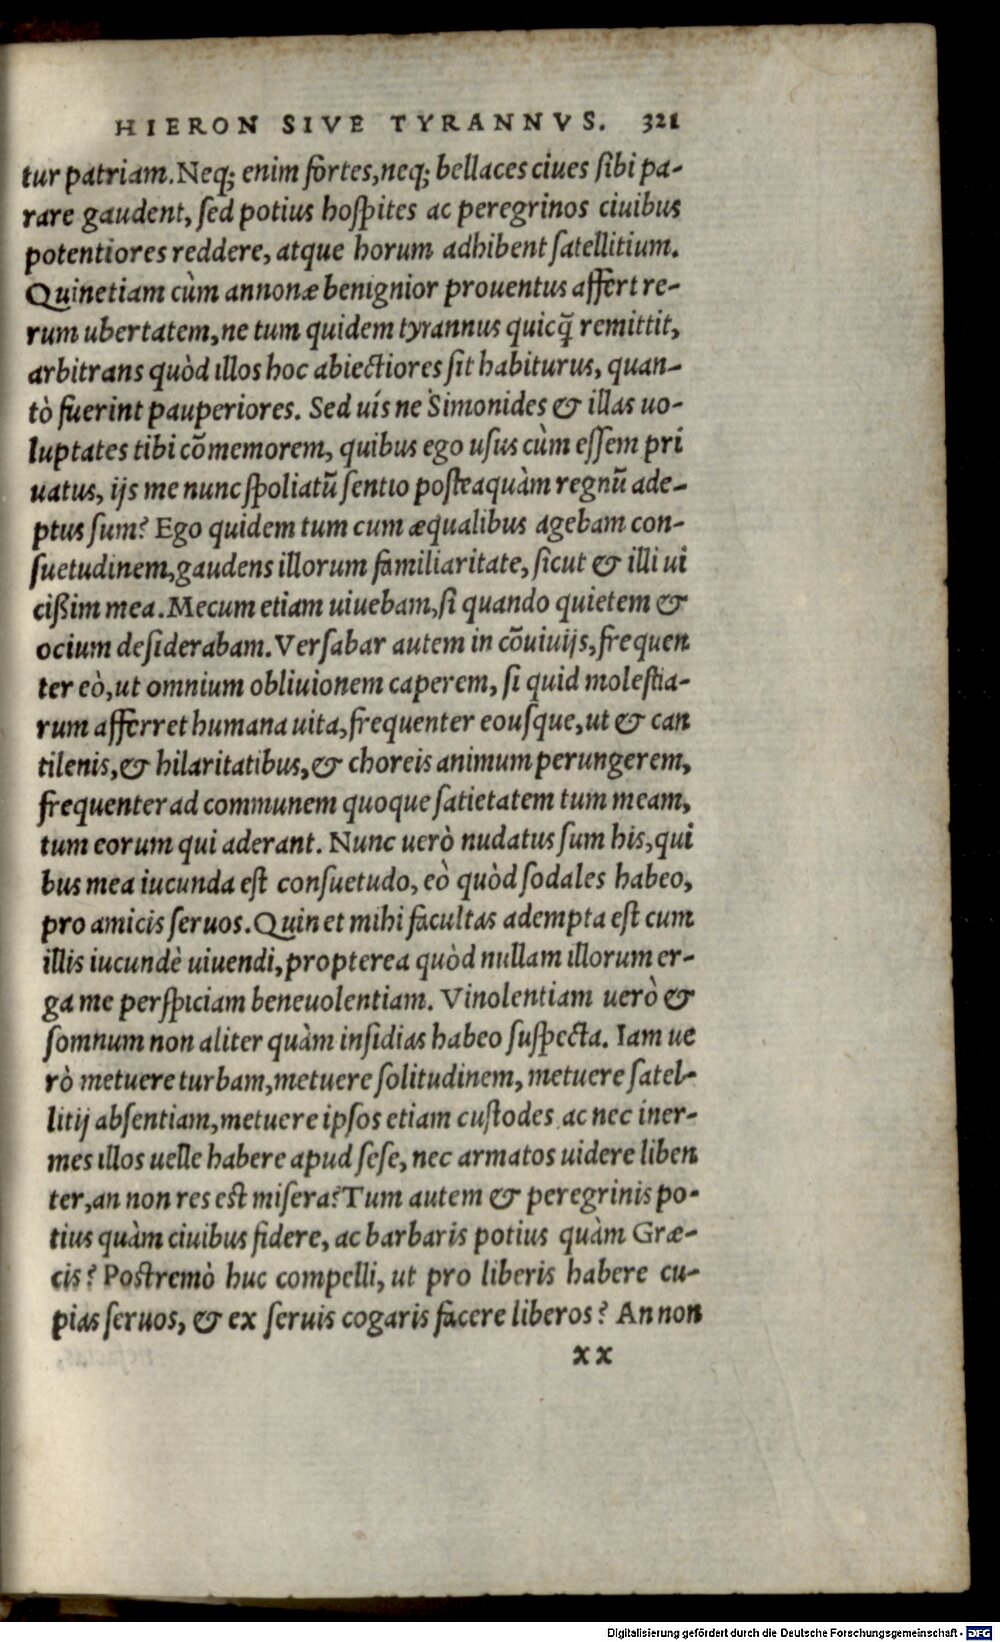 HIERON SIVE TYRANNVS. 321
tur patriam. Neq; enim fortes, neq; bellaces ciues sibi pa-
rare gaudent, sed potius hospites ac peregrinos ciuibus
potentiores reddere, atque horum adhibent satellitium.
Quinetiam cùm annonæ benignior prouentus affert re-
rum ubertatem, ne tum quidem tyrannus quicq̃ remittit,
arbitrans quòd illos hoc abiectiores sit habiturus, quan-
tò fuerint pauperiores. Sed uís ne Simonides & illas uo-
luptates tibi cõmemorem, quibus ego usus cùm essem pri
uatus, ijs me nunc spoliatũ sentio posteaquàm regnũ ade-
ptus sum? Ego quidem tum cum æqualibus agebam con-
suetudinem, gaudens illorum familiaritate, sicut & illi ui
cißim mea. Mecum etiam uiuebam, si quando quietem &
ocium desiderabam. Versabar autem in cõuiuijs, frequen
ter eò, ut omnium obliuionem caperem, si quid molestia-
rum afferret humana uita, frequenter eousque, ut & can
tilenis, & hilaritatibus, & choreis animum perungerem,
frequenter ad communem quoque satietatem tum meam,
tum eorum qui aderant. Nunc uerò nudatus sum his, qui
bus mea iucunda est consuetudo, eò quòd sodales habeo,
pro amicis seruos. Quin et mihi facultas adempta est cum
illis iucundè uiuendi, propterea quòd nullam illorum er-
ga me perspiciam beneuolentiam. Vinolentiam uerò &
somnum non aliter quàm insidias habeo suspecta. Iam ue
rò metuere turbam, metuere solitudinem, metuere satel-
litij absentiam, metuere ipsos etiam custodes ac nec iner-
mes illos uelle habere apud sese, nec armatos uidere liben
ter, an non res est misera? Tum autem & peregrinis po-
tius quàm ciuibus fidere, ac barbaris potius quàm Græ-
cis? Postremò huc compelli, ut pro liberis habere cu-
pias seruos, & ex seruis cogaris facere liberos? An non
xx
Digitalisierung gefördert durch die Deutsche Forschungsgemeinschaft - DFG